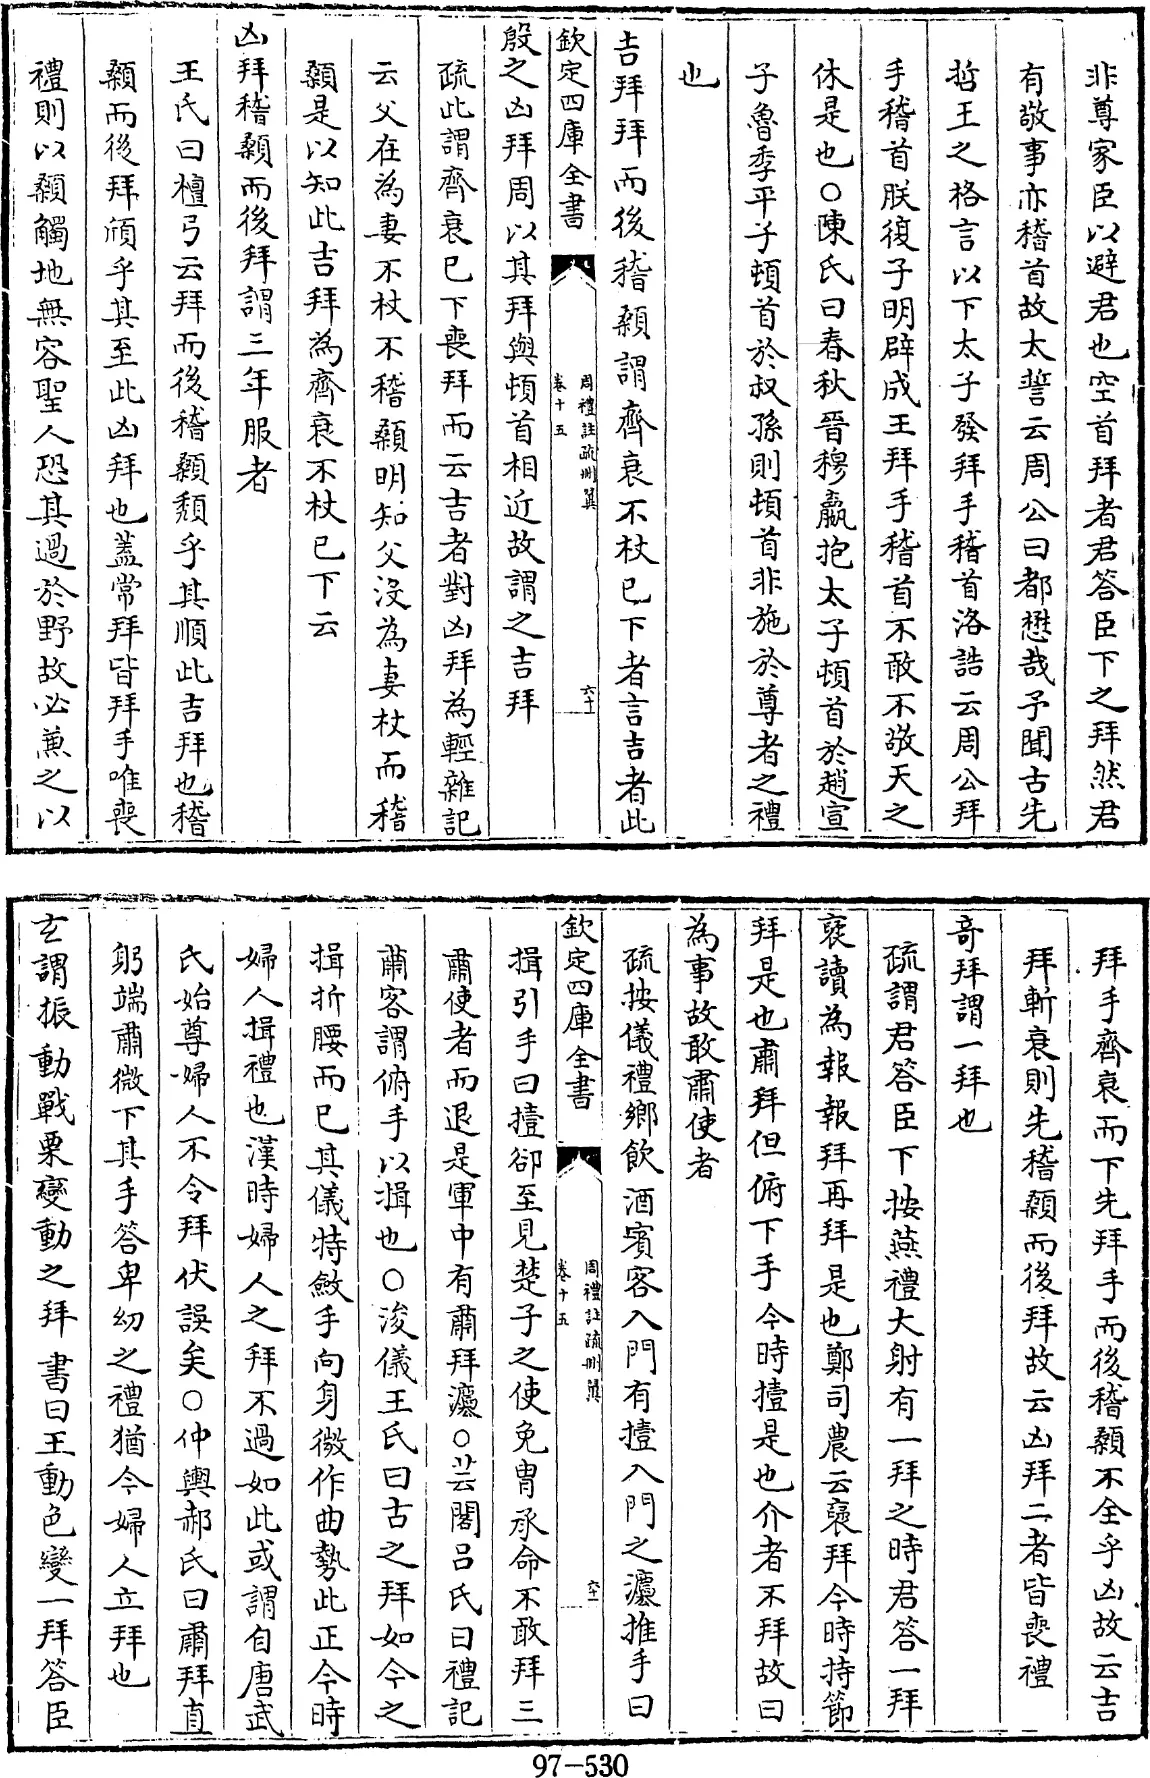 非尊家臣以避君也空首拜者君答臣下之拜然君
有敬事亦稽首故太誓云周公曰都懋哉予聞古先
哲王之格言以下太子發拜手稽首洛誥云周公拜
手稽首朕復子明辟成王拜手稽首不敢不敬天之
休是也○陳氏曰春秋晉穆嬴抱太子頓首於趙宣
子魯季平子頓首於叔孫則頓首非施於尊者之禮
也
吉拜拜而後稽顙謂齊衰不杖已下者言吉者此
欽定四庫全書
周禮註疏刪翼
卷十五
六十
殷之凶拜周以其拜與頓首相近故謂之吉拜
疏此謂齊衰已下喪拜而云吉者對凶拜為輕雜記
云父在為妻不杖不稽顙明知父沒為妻杖而稽
顙是以知此吉拜為齊衰不杖已下云
凶拜稽顙而後拜謂三年服者
王氏曰檀弓云拜而後稽顙頽乎其順此吉拜也稽
顙而後拜頎乎其至此凶拜也蓋常拜皆拜手唯喪
禮則以顙觸地無容聖人恐其過於野故必薰之以
拜手齊衰而下先拜手而後稽顙不全乎凶故云吉
拜斬衰則先稽顙而後拜故云凶拜二者皆喪禮
奇拜謂一拜也
疏謂君答臣下按燕禮大射有一拜之時君答一拜
褒讀為報報拜再拜是也鄭司農云褒拜今時持節
拜是也肅拜但俯下手今時撎是也介者不拜故曰
為事故敢肅使者
疏按儀禮鄉飲酒賓客入門有撎入門之灋推手曰
欽定四庫全書
周禮註疏刪翼
卷十五
六十一
揖引手曰撎郤至見楚子之使免冑承命不敢拜三
肅使者而退是軍中有肅拜灋○芸閣呂氏曰禮記
肅客謂俯手以揖也○浚儀王氏曰古之拜如今之
揖折腰而已其儀特斂手向身微作曲勢此正今時
婦人揖禮也漢時婦人之拜不過如此或謂自唐武
氏始尊婦人不令拜伏誤矣○仲輿郝氏曰肅拜直
躬端肅微下其手答卑幼之禮猶今婦人立拜也
玄謂振動戰栗變動之拜書曰王動色變一拜答臣
97-530